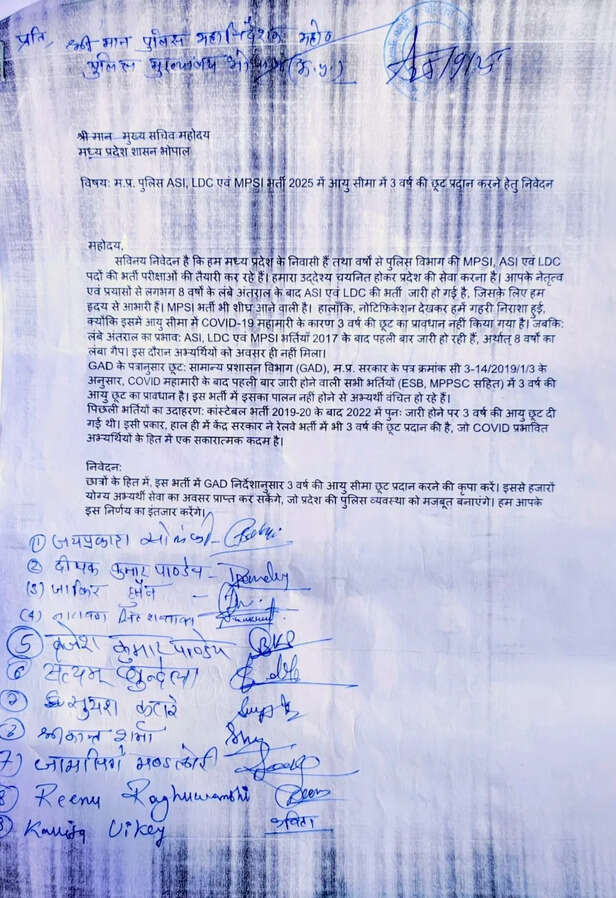 प्रति,
श्री मान पुलिस महानिर्देशक महोदय
पुलिस मुख्यालय भोपाल (म.प्र.)
श्री मान मुख्य सचिव महोदय
मध्य प्रदेश शासन भोपाल
विषय: म.प्र. पुलिस ASI, LDC एवं MPSI भर्ती 2025 में आयु सीमा में 3 वर्ष की छूट प्रदान करने हेतु निवेदन
महोदय,
सविनय निवेदन है कि हम मध्य प्रदेश के निवासी हैं तथा वर्षों से पुलिस विभाग की MPSI, ASI एवं LDC
पदों की भर्ती परीक्षाओं की तैयारी कर रहे हैं। हमारा उद्देश्य चयनित होकर प्रदेश की सेवा करना है। आपके नेतृत्व
एवं प्रयासों से लगभग 8 वर्षों के लंबे अंतराल के बाद ASI एवं LDC की भर्ती जारी हो गई है, जिसके लिए हम
हृदय से आभारी हैं। MPSI भर्ती भी शीघ्र आने वाली है। हालाँकि, नोटिफिकेशन देखकर हमें गहरी निराशा हुई,
क्योंकि इसमें आयु सीमा में COVID-19 महामारी के कारण 3 वर्ष की छूट का प्रावधान नहीं किया गया है। जबकि:
लंबे अंतराल का प्रभाव: ASI, LDC एवं MPSI भर्तियाँ 2017 के बाद पहली बार जारी हो रही हैं, अर्थात् 8 वर्षों का
लंबा गैप। इस दौरान अभ्यर्थियों को अवसर ही नहीं मिला।
GAD के पत्रानुसार छूट: सामान्य प्रशासन विभाग (GAD), म.प्र. सरकार के पत्र क्रमांक सी 3-14/2019/1/3 के
अनुसार, COVID महामारी के बाद पहली बार जारी होने वाली सभी भर्तियों (ESB, MPPSC सहित) में 3 वर्ष की
आयु छूट का प्रावधान है। इस भर्ती में इसका पालन नहीं होने से अभ्यर्थी वंचित हो रहे हैं।
पिछली भर्तियों का उदाहरण: कांस्टेबल भर्ती 2019-20 के बाद 2022 में पुनः जारी होने पर 3 वर्ष की आयु छूट दी
गई थी। इसी प्रकार, हाल ही में केंद्र सरकार ने रेलवे भर्ती में भी 3 वर्ष की छूट प्रदान की है, जो COVID प्रभावित
अभ्यर्थियों के हित में एक सकारात्मक कदम है।
निवेदन:
छात्रों के हित में, इस भर्ती में GAD निर्देशानुसार 3 वर्ष की आयु सीमा छूट प्रदान करने की कृपा करें। इससे हजारों
योग्य अभ्यर्थी सेवा का अवसर प्राप्त कर सकेंगे, जो प्रदेश की पुलिस व्यवस्था को मजबूत बनाएंगे। हम आपके
इस निर्णय का इंतजार करेंगे।
(1) जयप्रकाश सोलंकी -
(2) दीपक कुमार पाण्डेय - Pandey
(3) जाकिर हुसैन -
(4) नारायण सिंह
(5) ब्रजेश कुमार पाण्डेय BKP
(6) सत्यम बुन्देला
(7) सुयश कटारे
श्रीकान्त शर्मा
7)
8) Reenu Raghuwanshi Reenu
Kavita Uikey कविता